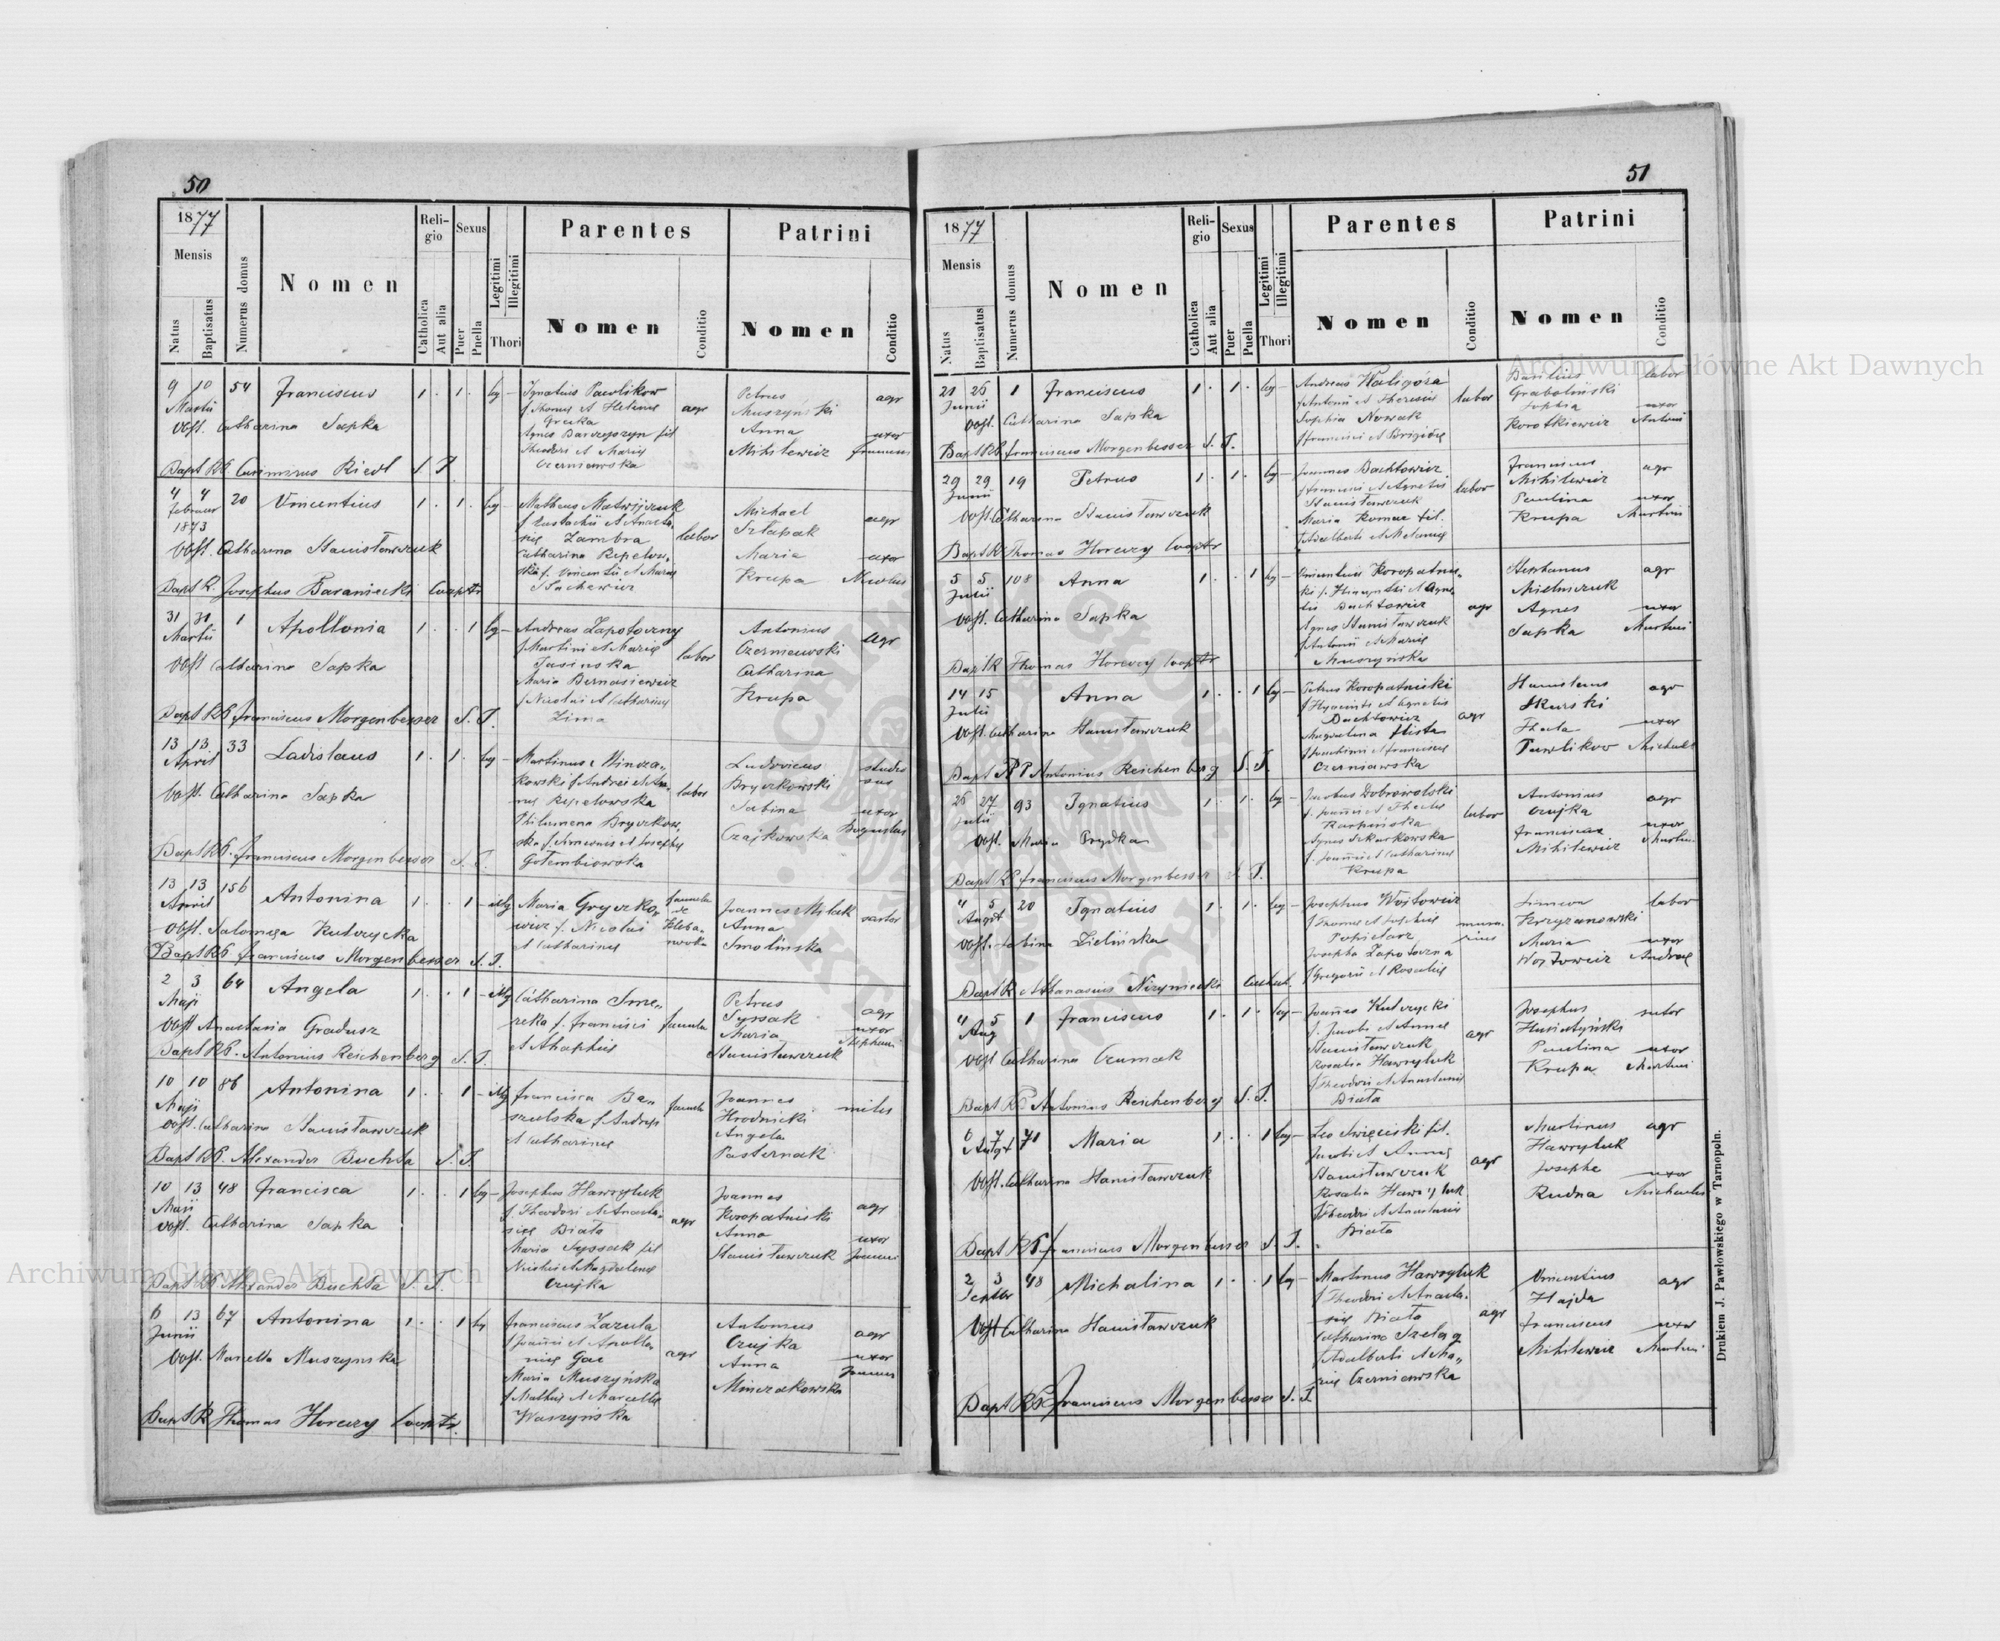 50
1877
Mensis
Natus
Baptisatus
Numerus domus
Nomen
Religio
Catholica
Aut alia
Sexus
Puer
Puella
Legitimi
Illegitimi
Thori
Parentes
Nomen
Conditio
Patrini
Nomen
Conditio
9 10 54 Franciscus 1 . 1 . leg –
Martii
Obst. Catharina Sapka
Ignatius Pawlikow
f. Thomae et Helenae
agr
Petrus
Muszyński
Anna
Mihilewicz
agr
uxor
Bapt RP. Casimirus Riedl S. J.
4 4 20 Vincentius 1 . 1 . leg –
Februar
1873
Obst. Catharina Stanisławczuk
Matheus Matwijczuk
Zambra
labor
Michael
Szłapak
Maria
Krupa
agr
uxor
Bapt R. Josephus Baraniecki Cooptr
31 31 1 Apollonia 1 . . 1 leg –
Martii
Obst Catharina Sapka
Andreas Zapotoczny
f Martini et Mariae
Jasinska
Maria Bernasiewicz
f Nicolai et Catharinae
Zima
labor
Antonius
Czerniewski
Catharina
Krupa
agr
Bapt RP. Franciscus Morgenbesser S. J.
13 13 33 Ladislaus 1 . 1 . leg –
April
Obst. Catharina Sapka
Martinus Mincza-
kowski f. Andreae et An-
nae Repetowska
Philumena Bryczkow-
Gołembiowska
labor
Ludovicus
Bryczkowski
Sabina
Czajkowska
uxor
Bapt RP. Franciscus Morgenbesser S. J.
13 13 156 Antonina 1 . . 1 – illeg
April
Obst. Salomea Kulczycka
Maria Gryczko-
wicz f. Nicolai
et Catharinae
famula
Joannes Mylak
Anna
Smolinska
sartor
Bapt RP Franciscus Morgenbesser S. J.
2 3 64 Angela 1 . . 1 – illeg
Maji
Obst Anastasia Gradusz
Catharina Sme-
reka f. Francisci
et Ahaphiae
famula
Petrus
Syssak
Maria
Stanisławczuk
agr
uxor
Stephani
Bapt RP. Antonius Reichenberg S. J.
10 10 86 Antonina 1 . . 1 – illeg
Maji
Obst. Catharina Stanisławczuk
Francisca Ba-
szulska f Andreae
et Catharinae
famula
Joannes
Hrodnicki
Angela
Pasternak
miles
Bapt RP. Alexander Buchta S. J.
10 13 48 Francisca 1 . . 1 leg –
Maji
Obst. Catharina Sapka
Josephus Hawryluk
f. Theodori et Anasta-
siae Biała
Maria Syssak fil
Nicolai et Magdalenae
Czujka
agr
Joannes
Koropatnicki
Anna
Stanisławczuk
agr
uxor
Joannis
Bapt RP Alexander Buchta S. J.
6 13 67 Antonina 1 . . 1 leg
Junii
Obst. Marcella Muszynska
Franciscus Zazula
f Joannis et Apollo-
niae Gac
Maria Muszyńska
f Mathiae et Marcellae
Waszyńska
agr
Antonius
Czujka
Anna
Minczakowska
agr
uxor
Joannis
Bapt R Thomas Horeczy Cooptr.
51
1877
Mensis
Natus
Baptisatus
Numerus domus
Nomen
Religio
Catholica
Aut alia
Sexus
Puer
Puella
Legitimi
Illegitimi
Thori
Parentes
Nomen
Conditio
Patrini
Nomen
Conditio
21 26 1 Franciscus 1 . 1 . leg –
Junii
Obst. Catharina Sapka
Andreas Kaligóra
f Antonii et Theresiae
Sophia Nowak
f Francisci et Brigidae
labor
Basilius
Graboliński
Sophia
Korotkiewicz
labor
uxor
Antonii
Bapt RP. Franciscus Morgenbesser S. J.
29 29 19 Petrus 1 . 1 . leg –
Junii
Obst. Catharina Stanisławczuk
Joannes Bachtowicz
f Francisci et Agnetis
Stanisławczuk
Maria Roman fil.
f Adalberti et Melaniae
labor
Franciscus
Mihilewicz
Paulina
Krupa
agr
uxor
Martini
Bapt R. Thomas Horeczy Cooptr
5 5 108 Anna 1 . . 1 leg –
Julii
Obst. Catharina Sapka
Vincentius Koropatnic-
ki f. Hyacynthi et Agne-
tis Bachtowicz
Agnes Stanisławczuk
f Antonii et Mariae
Muszyńska
agr
Stephanus
Mielniczuk
Agnes
Sapka
agr
uxor
Martini
Bapt R Thomas Horeczy Cooptr
14 15 Anna 1 . . 1 leg –
Julii
Obst. Catharina Stanisławczuk
Petrus Koropatnicki
f Hyacinti et Agnetis
Bachtowicz
Magdalena Hista
f Joachimi et Franciscae
Czerniawska
agr
Stanislaus
Skurski
Thecla
Pawlikow
agr
uxor
Michaelis
Bapt RP Antonius Reichenberg S. J.
26 27 93 Ignatius 1 . 1 . leg –
Julii
Obst. Maria Prydka
Jacobus Dobrowolski
f. Joannis et Theclae
Karpińska
Agnes Sekurkowska
f. Joannis et Catharinae
Krupa
labor
Antonius
Czujka
Francisca
Mihilewicz
agr
uxor
Martini
Bapt RP Franciscus Morgenbesser S. J.
4 5 20 Ignatius 1 . 1 . leg –
Augst
Obst. Sabina Zielińska
Josephus Wojtowicz
f Thomae et Sophiae
Popielarz
Josepha Zapotoczna
f Gregorii et Rosaliae
murarius
Simeon
Krzyzanowski
Maria
Wojtowicz
labor
uxor
Andreae
Bapt R Athanasius Niżyniecki
4 5 1 Franciscus 1 . 1 . leg –
Aug
Obst Catharina Czumak
Joannes Kulczycki
f. Jacobi et Annae
Stanisławczuk
Rosalia Hawryluk
f Theodori et Anastasiae
Biała
agr
Josephus
Husiatyński
Paulina
Krupa
sutor
uxor
Martini
Bapt RP Antonius Reichenberg S. J.
6 7 71 Maria 1 . . 1 leg –
Augst
Obst. Catharina Stanisławczuk
Leo Swięcicki fil.
Jacobi et Annae
Stanisławczuk
Rosalia Hawryluk
f Theodori et Anastasiae
Biała
agr
Martinus
Hawryluk
Josepha
Rudna
agr
uxor
Michaelis
Bapt RP. Franciscus Morgenbesser S. J.
2 3 48 Michalina 1 . . 1 leg –
Septbr
Obst Catharina Stanisławczuk
Martinus Hawryluk
f Theodori et Anasta-
siae Biała
Catharina Szeląg
f Adalberti et Ma-
riae Czerniawska
agr
Vincentius
Hajda
Franciscus
Mihilewicz
agr
uxor
Martini
Bapt RP. Franciscus Morgenbesser S. J.
Drukiem J. Pawłowskiego w Tarnopoln.
Archiwum Główne Akt Dawnych
Archiwum Główne Akt Dawnych